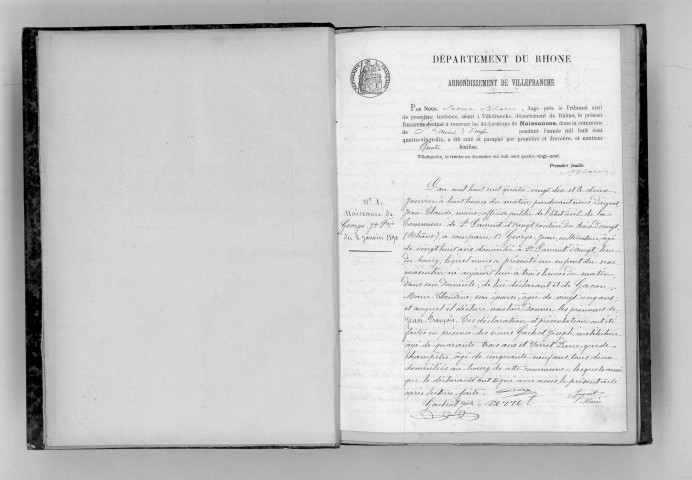 DÉPARTEMENT DU RHONE
ARRONDISSEMENT DE VILLEFRANCHE
PAR NOUS, Blanc, Juge près le Tribunal civil
de première instance, séant à Villefranche, département du Rhône, le présent
Registre destiné à recevoir les déclarations de Naissances, dans la commune
de St Laurent d'Oingt pendant l'année mil huit cent
quatre-vingt-dix, a été coté et paraphé par première et dernière, et contient
feuillets.
Villefranche, le trente-un décembre mil huit cent quatre-vingt-neuf.
Première feuille.
N° 1.
Naissance de
George Jn Fçois
du 2 janvier 1890
L'an mil huit cent quatre-vingt dix et le deux
janvier à huit heures du matin, pardevant nous
Jean Claude, maire, officier public de l'état civil de la
Commune de St Laurent d'Oingt, canton du bois d'oingt,
(Rhône), a comparu Mr George Jean, cultivateur, âgé
de vingt huit ans domicilié à St Laurent d'Oingt, lieu
du bourg, lequel nous a présenté un enfant du sexe
masculin, né aujourd'hui à trois heures du matin
dans son domicile, de lui déclarant et de
Marie Claudine, son épouse, âgée de vingt cinq ans,
et auquel il déclare vouloir donner les prénoms de
Jean François. Ces déclaration et présentation ont été
faites en présence des sieurs Gachot Joseph, instituteur
âgé de quarante trois ans et Verret Pierre, garde
champêtre âgé de cinquante neuf ans tous deux
domiciliés au bourg de cette commune; lesquels ainsi
que le déclarant ont signé avec nous le présent acte
après lecture faite.
Gachot Verret